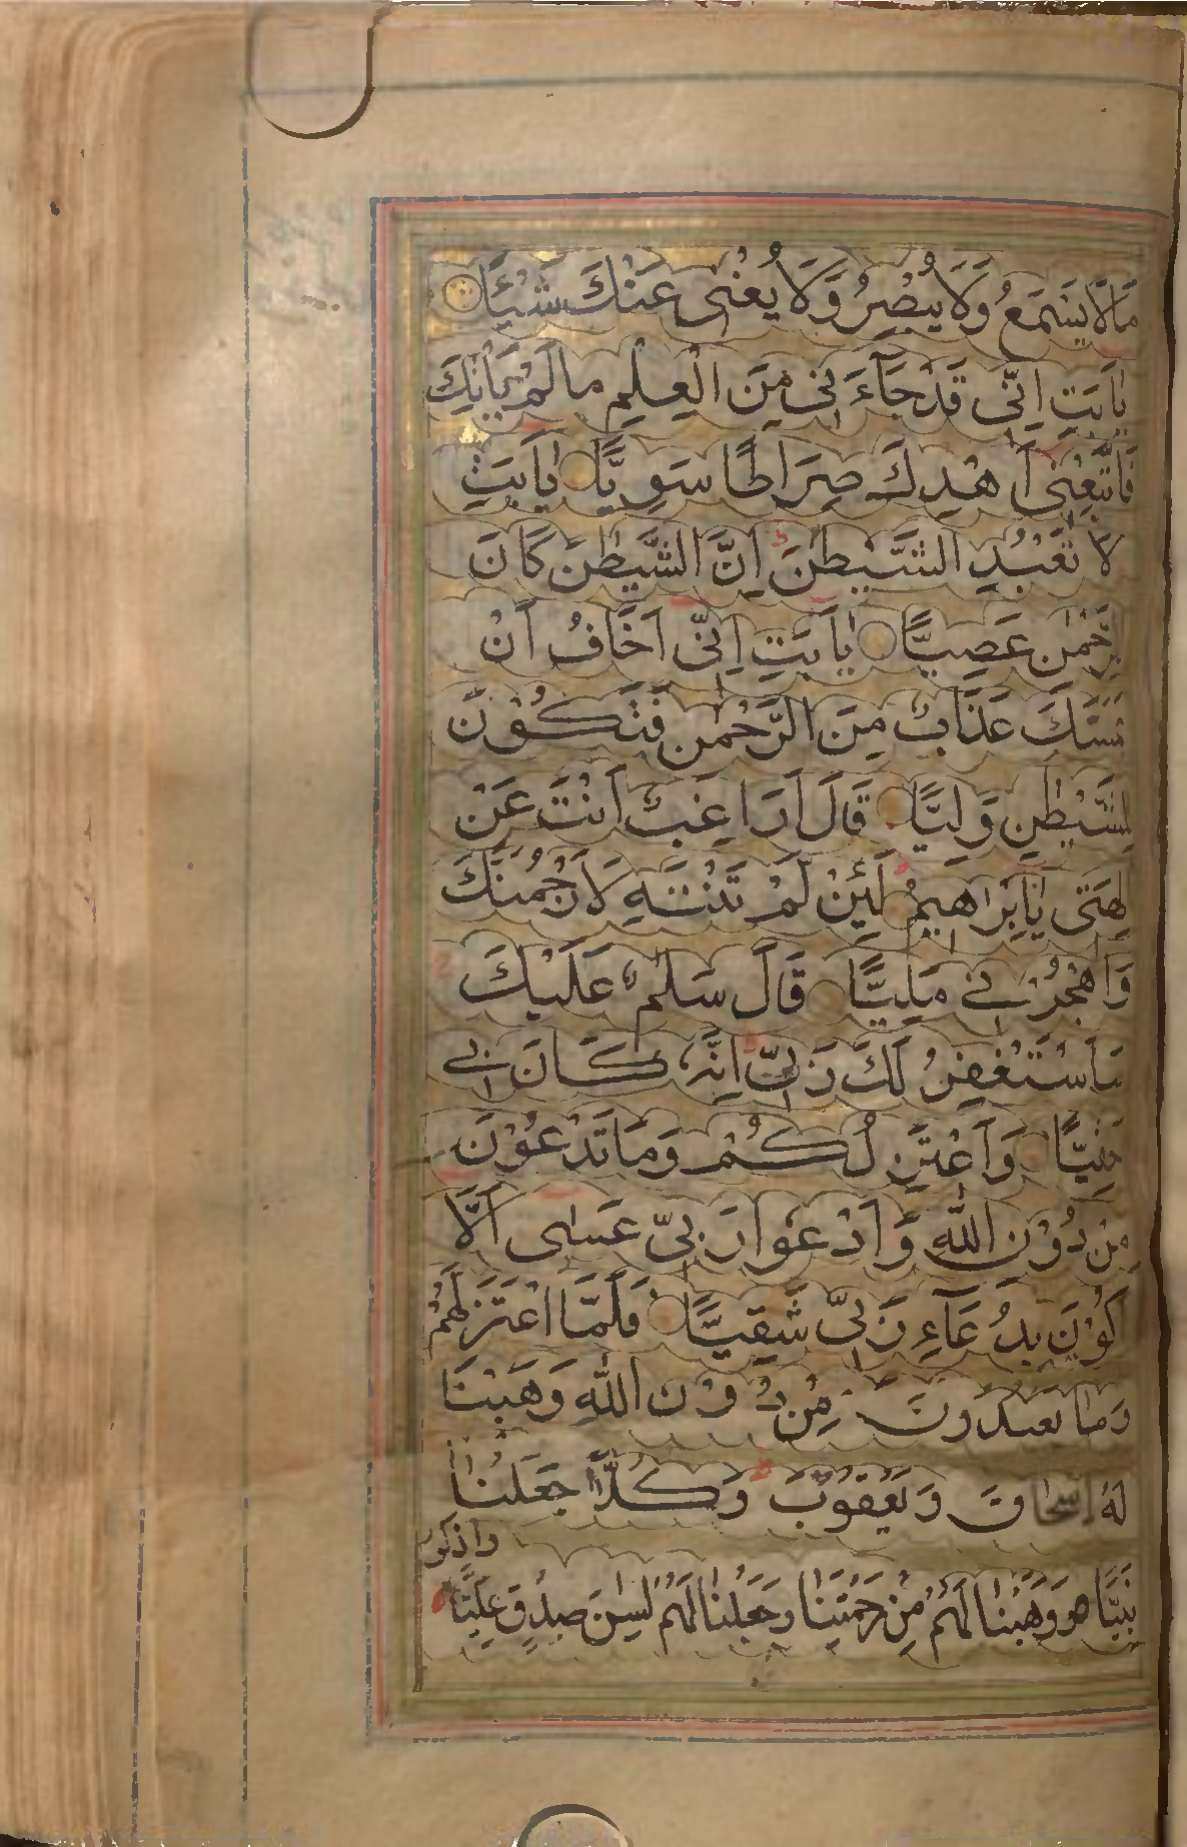 مَالَا يَسْمَعُ وَلَا يُبْصِرُ وَلَا يُغْنِى عَنْكَ شَيْئًا
يٰاَبَتِ اِنِّى قَدْ جَآءَنِى مِنَ الْعِلْمِ مالَمْ يَأْتِكَ
فَاتَّبِعْنِى اَهْدِكَ صِرَاطًا سَوِيًّا يٰاَبَتِ
لَا تَعْبُدِ الشَّيْطٰنَ اِنَّ الشَّيْطٰنَ كَانَ
لِلرَّحْمٰنِ عَصِيًّا يٰاَبَتِ اِنِّى اَخَافُ اَنْ
يَمَسَّكَ عَذَابٌ مِنَ الرَّحْمٰنِ فَتَكُوْنَ
لِلشَّيْطٰنِ وَلِيًّا قَالَ اَرَاغِبٌ اَنْتَ عَنْ
اٰلِهَتِى يٰاِبْرَاهِيمُ لَئِنْ لَمْ تَنْتَهِ لَاَرْجُمَنَّكَ
وَاهْجُرْنِى مَلِيًّا قَالَ سَلٰمٌ عَلَيْكَ
سَاَسْتَغْفِرُ لَكَ رَبِّى اِنَّهُ كَانَ بِى
حَفِيًّا وَاَعْتَزِلُكُمْ وَمَا تَدْعُوْنَ
مِنْ دُوْنِ اللّٰهِ وَاَدْعُوا رَبِّى عَسٰى اَلَّا
اَكُوْنَ بِدُعَآءِ رَبِّى شَقِيًّا فَلَمَّا اعْتَزَلَهُمْ
وَمَا يَعْبُدُونَ مِنْ دُوْنِ اللّٰهِ وَهَبْنَا
لَهُ اِسْحَاقَ وَيَعْقُوْبَ وَكُلًّا جَعَلْنَا
نَبِيًّا وَوَهَبْنَا لَهُمْ مِنْ رَحْمَتِنَا وَجَعَلْنَا لَهُمْ لِسٰنَ صِدْقٍ عَلِيًّا
وَاذْكُر